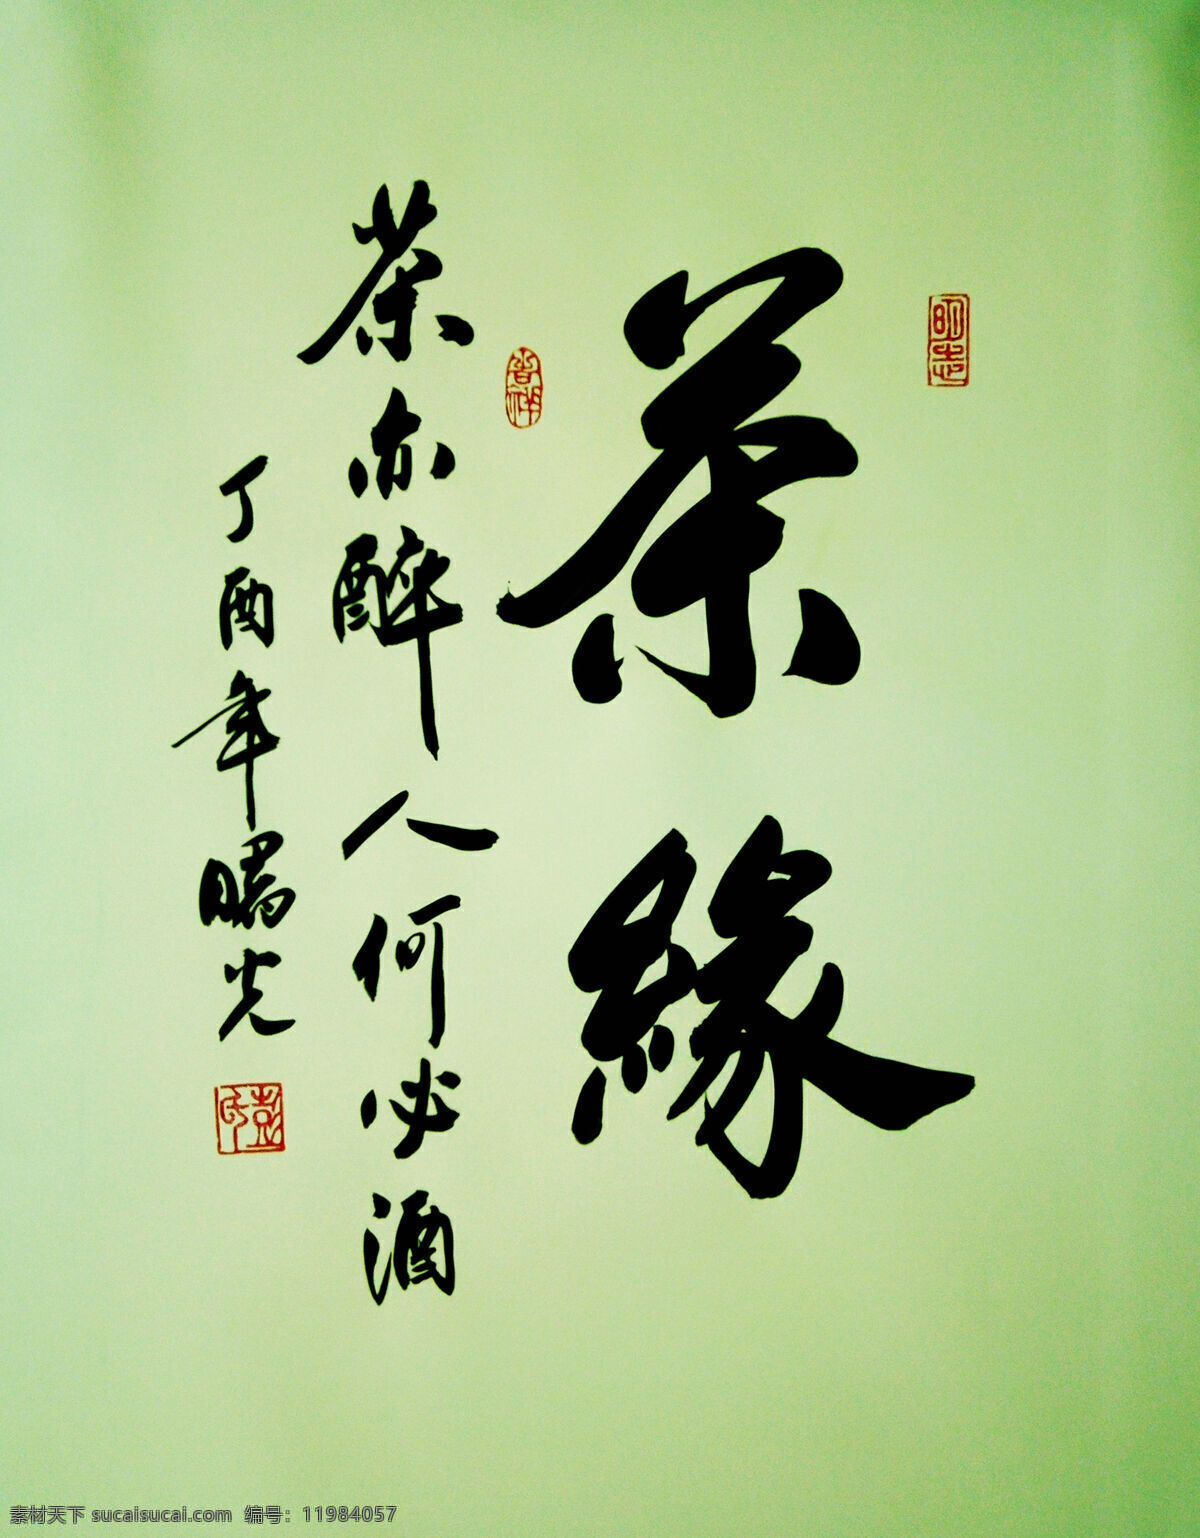 茶緣
茶亦醉人何必酒
丁酉年曉光
明志
彭氏
素材天下 sucaisucai.com 编号：11984057